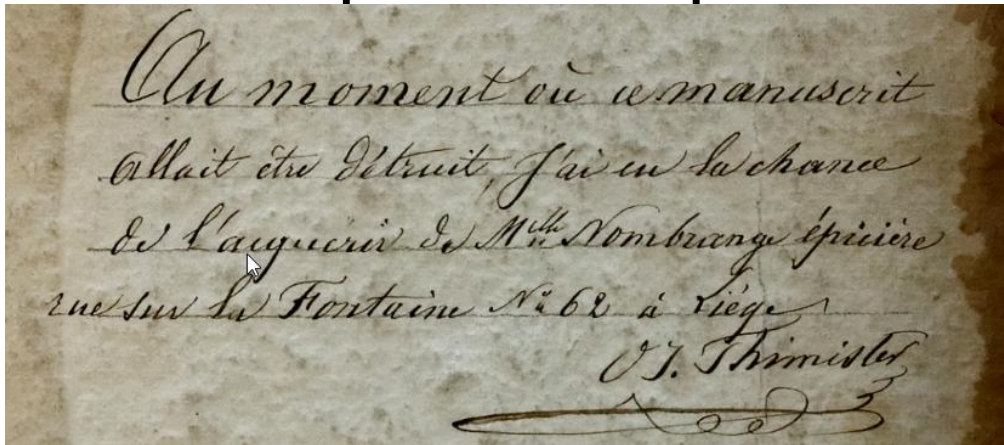 Au moment où ce manuscrit
allait être détruit, j'ai eu la chance
de l'acquérir de Mlle Nombrange épicière
rue sur la Fontaine No 62 à Liége
O J. Thimister